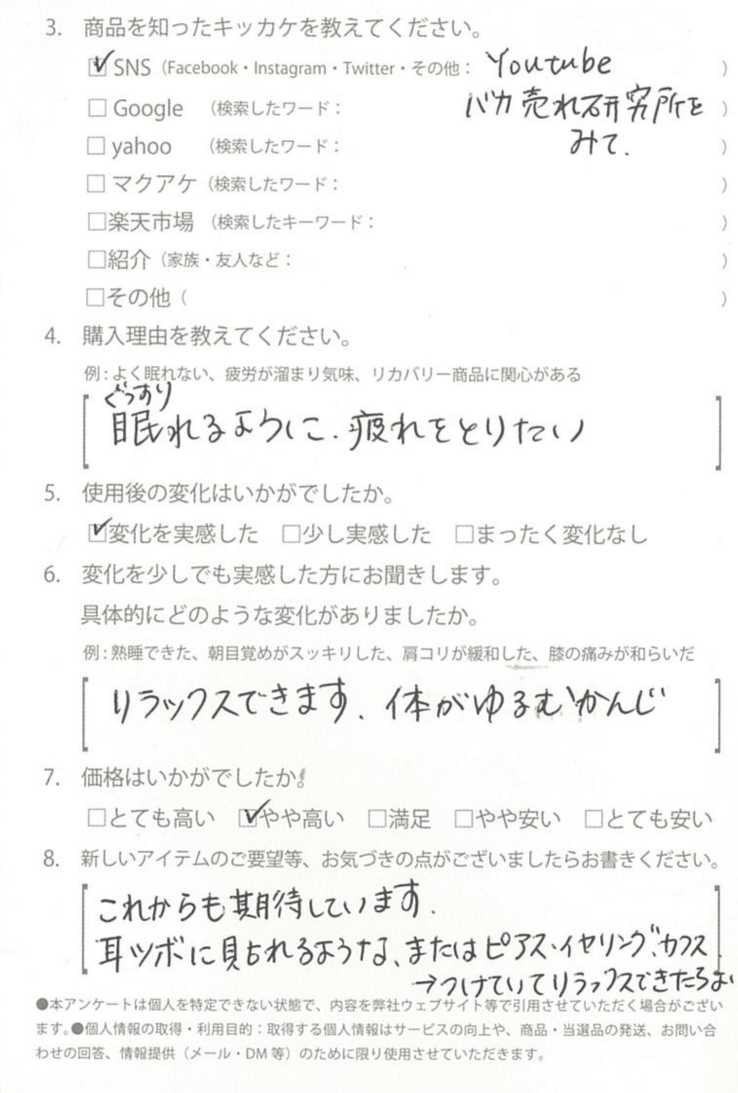 3. 商品を知ったキッカケを教えてください。
☑SNS（Facebook・Instagram・Twitter・その他： Youtube ）
□ Google （検索したワード： バカ売れ研究所を ）
□ yahoo （検索したワード： みて. ）
□ マクアケ（検索したワード： ）
□楽天市場（検索したキーワード： ）
□紹介（家族・友人など： ）
□その他（ ）
4. 購入理由を教えてください。
例：よく眠れない、疲労が溜まり気味、リカバリー商品に関心がある
ぐっすり
眠れるように. 疲れをとりたい
5. 使用後の変化はいかがでしたか。
☑変化を実感した □少し実感した □まったく変化なし
6. 変化を少しでも実感した方にお聞きします。
具体的にどのような変化がありましたか。
例：熟睡できた、朝目覚めがスッキリした、肩コリが緩和した、膝の痛みが和らいだ
リラックスできます. 体がゆるむかんじ
7. 価格はいかがでしたか。
□とても高い ☑やや高い □満足 □やや安い □とても安い
8. 新しいアイテムのご要望等、お気づきの点がございましたらお書きください。
これからも期待しています.
耳ツボに見られるような、またはピアス・イヤリング、カフス
→つけていてリラックスできたらよい
●本アンケートは個人を特定できない状態で、内容を弊社ウェブサイト等で引用させていただく場合がござい
ます。●個人情報の取得・利用目的：取得する個人情報はサービスの向上や、商品・当選品の発送、お問い合
わせの回答、情報提供（メール・DM 等）のために限り使用させていただきます。